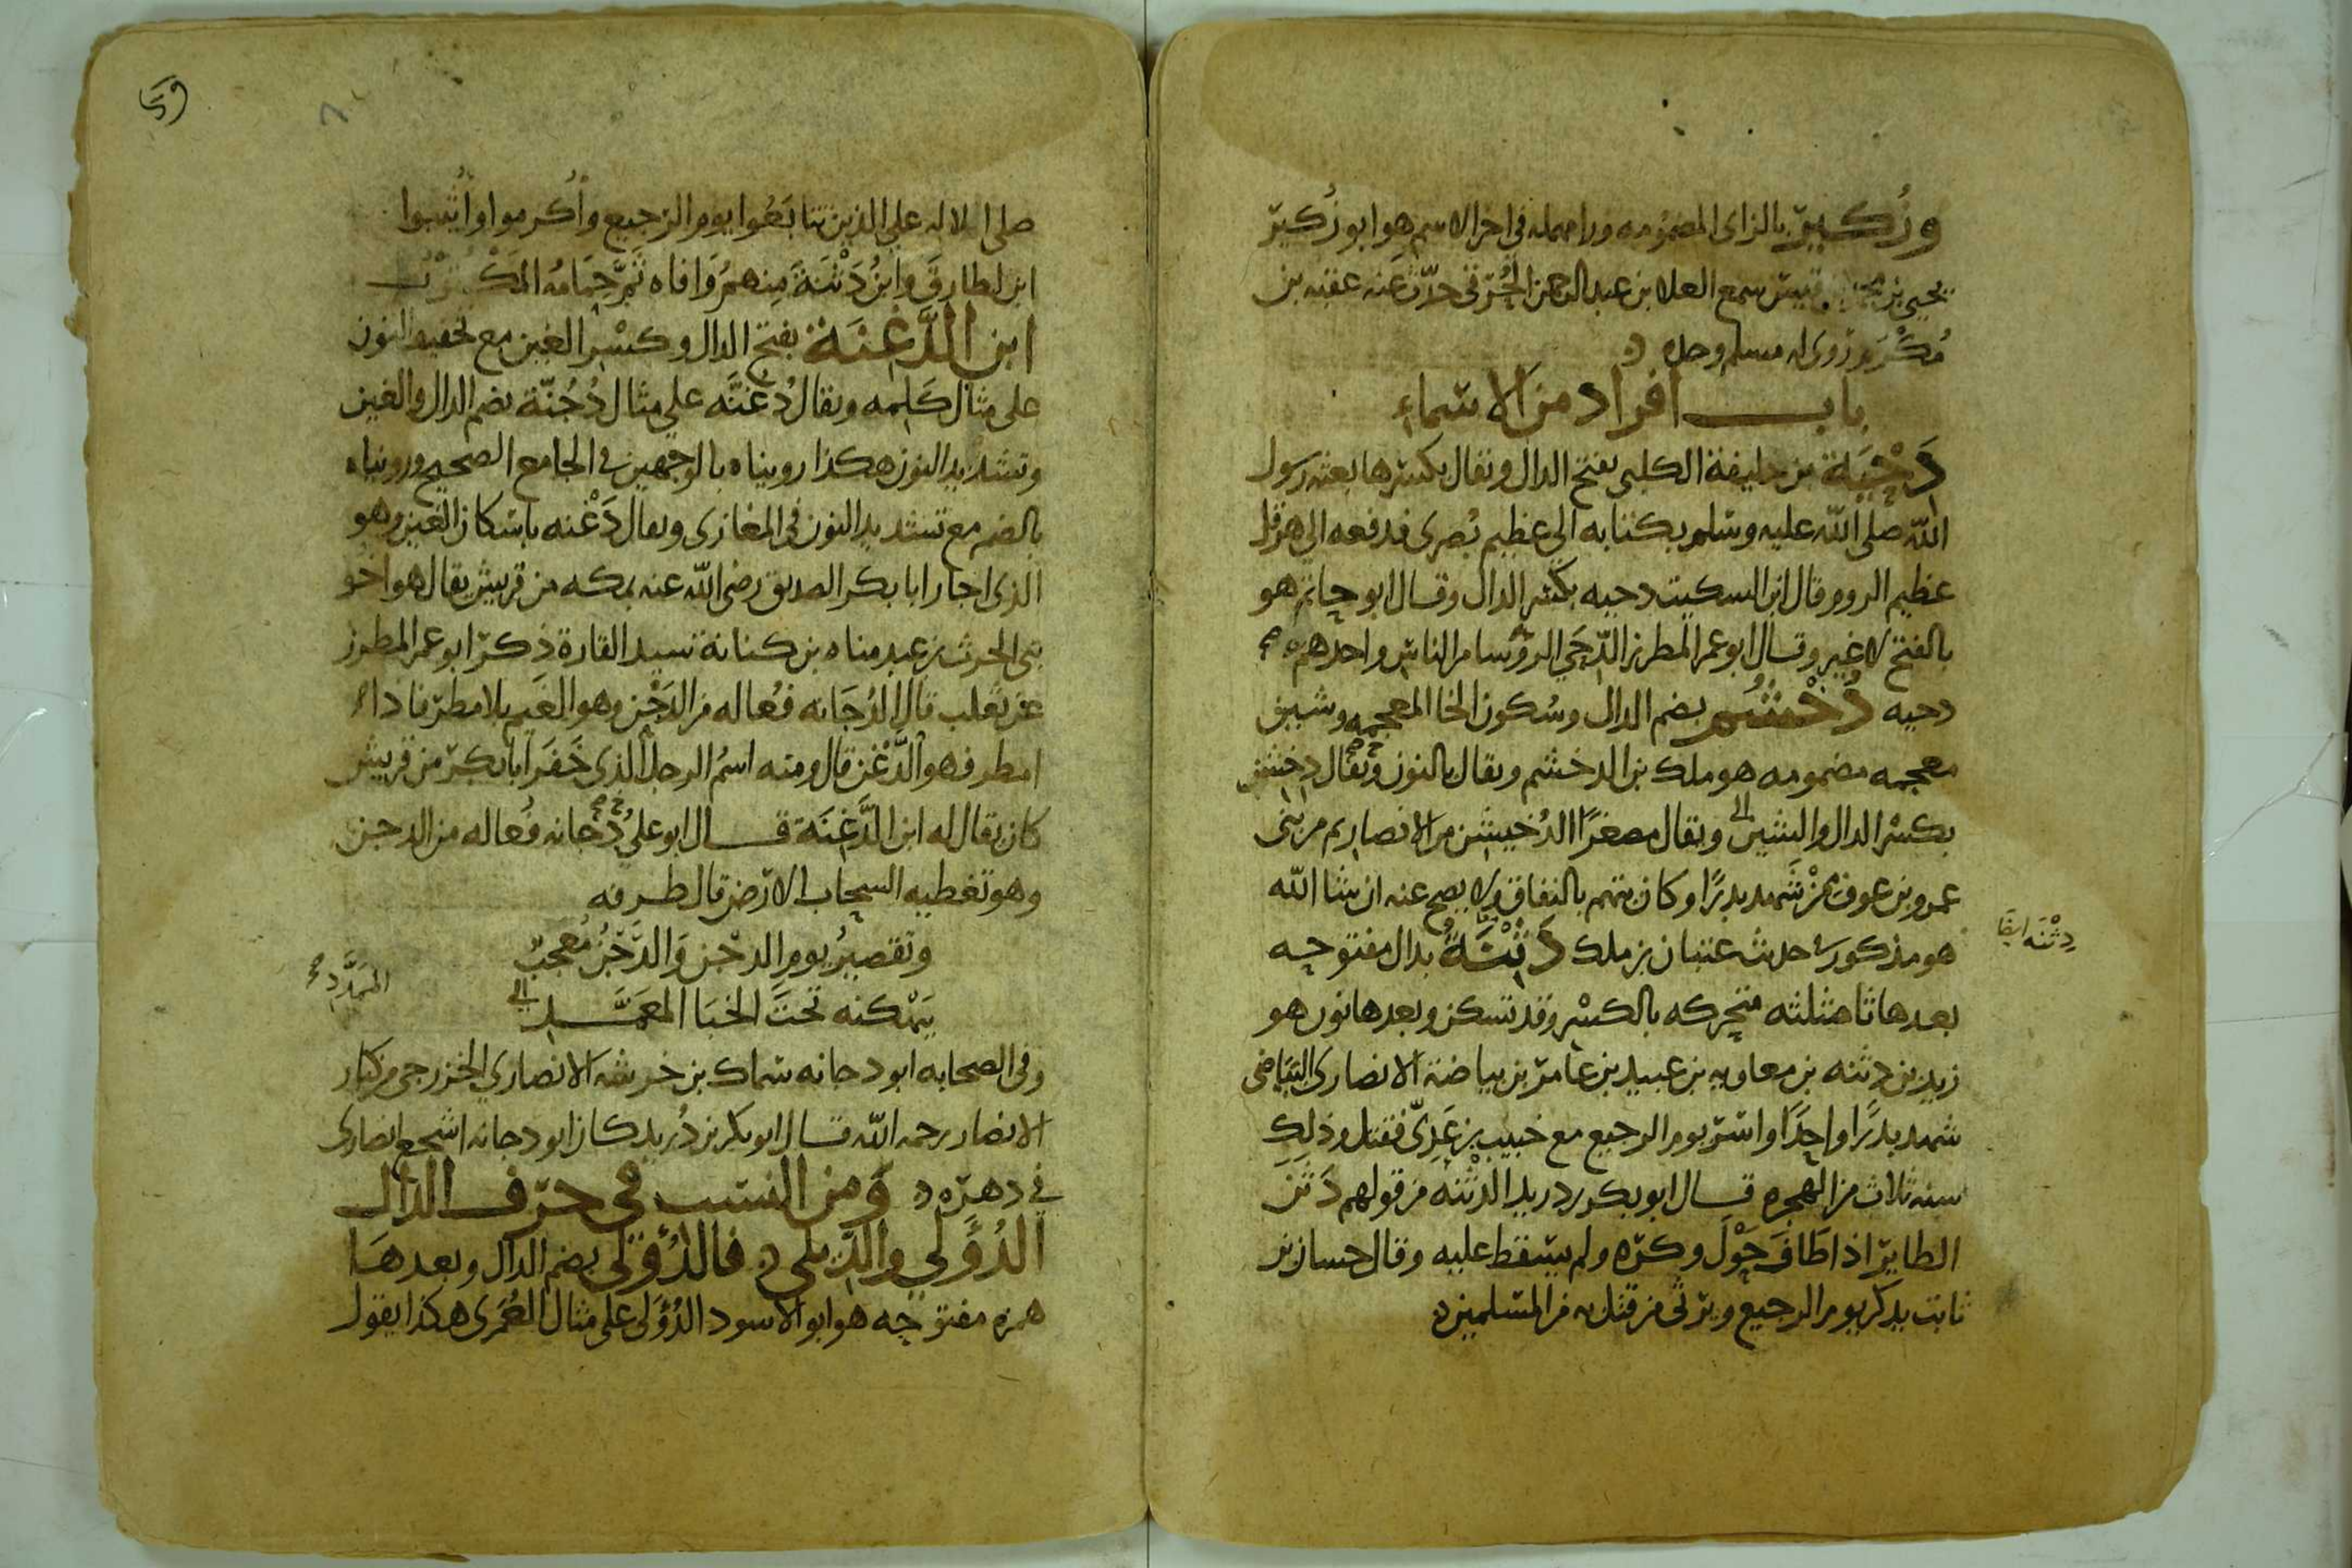 وزُكَيْر بالزاى المضمومه ورا مهمله في اخر الاسم هو ابو زُكَيْر
يحيى بن محمد بن قيس سمع العلا بن عبد الرحمن الحُرَقى حدّث عنه عقبه بن
مُكْرَم روى له مسلم وحده
باب افراد من الاسماء
دَحْيَة بن خليفة الكلبى بفتح الدال ويقال بكسرها بعثه رسول
الله صلى الله عليه وسلم بكتابه الى عظيم بُصرى فدفعه الى هرقل
عظيم الروم وقال ابن السكيت دحيه بكسر الدال وقال ابو حاتم هو
بالفتح لا غير وقال ابو عمر المطرز الدّحَى الرؤسا من الناس واحدهم
دحيه دُخْشُم بضم الدال وسُكون الخا المعجمه وشين
معجمه مضمومه هو ملك بن الدخشم ويقال بالنون ويقال دِخشِن
بكسر الدال والشين ويقال مصغرًا الدُخيشن من الانصار من بنى
عمرو بن عوف ممن شهد بدرًا وكان يتهم بالنفاق ولا يصح عنه ان شا الله
هو مذكور في حديث عتبان بن ملك دَثِنَة بدال مفتوحه
بعدها ثا مثلثه متحركه بالكسر وقد تسكن وبعدها نون هو
زيد بن دثنه بن معاويه بن عبيد بن عامر بن بياضة الانصارى البَيَاضى
شهد بدرًا واحدًا واسر يوم الرجيع مع خبيب بن عَدِىّ فقتل وذلك
سنه ثلاث من الهجره قال ابو بكر بن دريد الدثنه من قولهم دَثَّنَ
الطاير اذا طَافَ حَوْلَ وكره ولم يسقط عليه وقال حسان بن
ثابت يذكر يوم الرجيع ويرثى من قتل به من المسلمين
دِثْنَه ايضًا
صلى الاله على الذين تتابَعُوا يوم الرجيع وأكرموا وأثيبوا
ابن لطارق وابنُ دَثْنَةَ مِنهمُ وَافاه ثَمَّ حِمَامُه المَكْتُوبُ
ابن الدَّغِنَة بفتح الدال وكسْر الغين مع تخفيف النون
على مثال كَلِمه ويقال دُغُنَّه على مثال دُجُنّة بضم الدال والغين
وتشديد النون هكذا رويناه بالوجهين في الجامع الصحيح ورويناه
بالضم مع تشديد النون فى المغازى ويقال دَغْنه باسكان الغين وهو
الذى اجار ابا بكر الصديق رضى الله عنه بمكه من قريش يقال هو اخو
بنى الحرث بن عبد مناه بن كنانة سيد القارة ذكر ابو عمر المطرز
عن ثعلب قال الدُجَانه فُعاله من الدَجْن وهو الغَيم بلا مطر فاذا
امطر فهو الدَّغْن قال ومنه اسمُ الرجل الذى خَفَرَ ابا بكر من قريش
كان يقال له ابن الدَّغِنَة قال ابو على دُجانه فُعاله من الدجن
وهو تغطيه السحاب الارض قال طرفه
وتقصيرُ يومِ الدجْن وَالدَّجْنُ مُعجبٌ
بِبَهْكنه تحتَ الخبَا المعَمَّدِ
المُمَدَّدِ
وفى الصحابه ابو دجانه سماك بن خرشه الانصاري الخزرجى من كبار
الانصار رحمه الله قال ابو بكر بن دُريد كان ابو دجانه اشجع انصارى
في دهره ومن النسب في حرف الدال
الدُؤَلي والدِّيلى فالدُؤَلى بضم الدال وبعدهَا
همزه مفتوحه هو ابو الاسود الدُؤَلى على مثال العُمَرى هكذا يقول